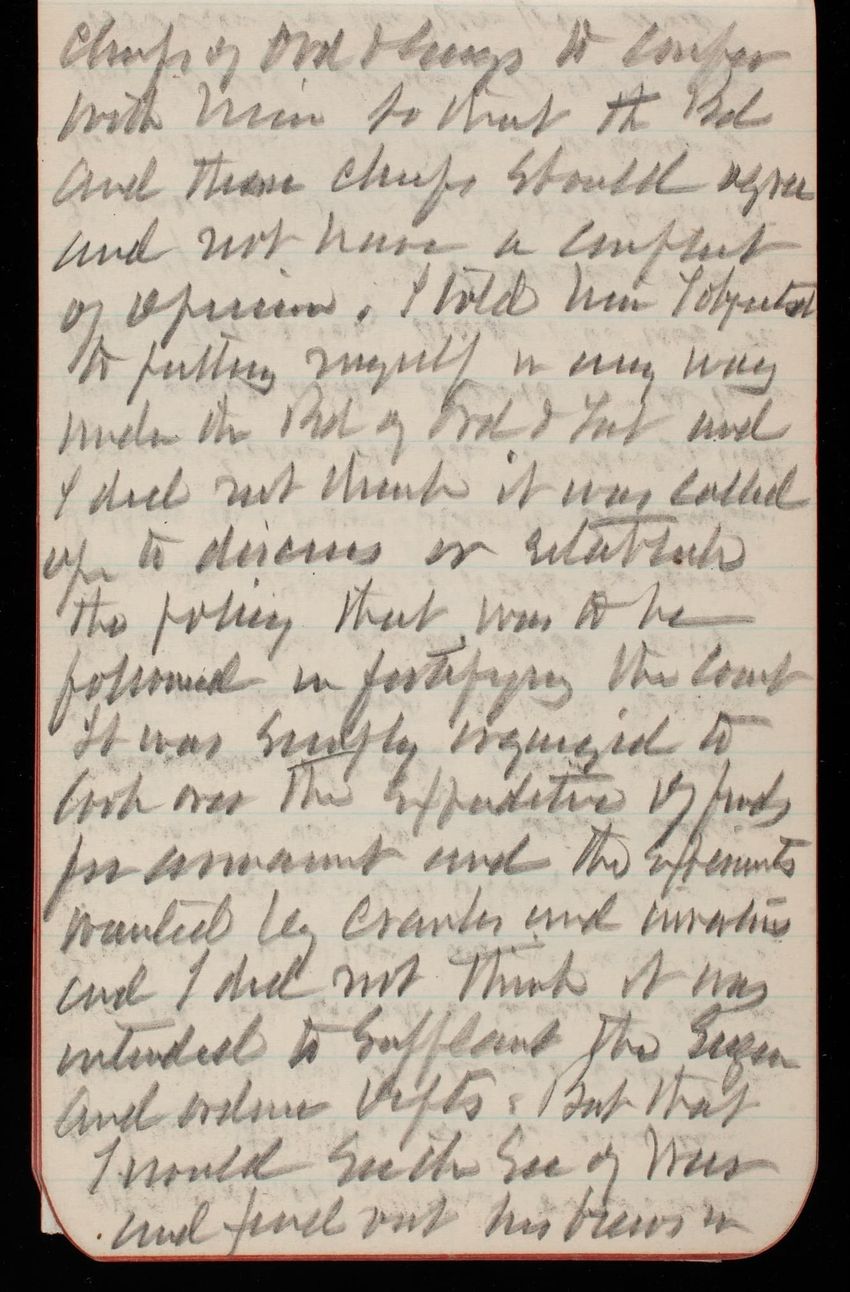 Chiefs of Ord & Engs to confer
with him so that the Bd
and these chiefs should agree
and not have a conflict
of opinion. I told him I objected
to putting myself in any way
under the Bd of Ord & Fort and
I did not think it was called
upon to discuss or establish
the policy that was to be
followed in fortifying the coast
It was simply organized to
look over the expenditure of funds
for armament and the experiments
wanted by cranks and inventors
and I did not think it was
intended to supplant the Engin
and ordnance Depts. But that
I would see the Sec of War
and find out his views in